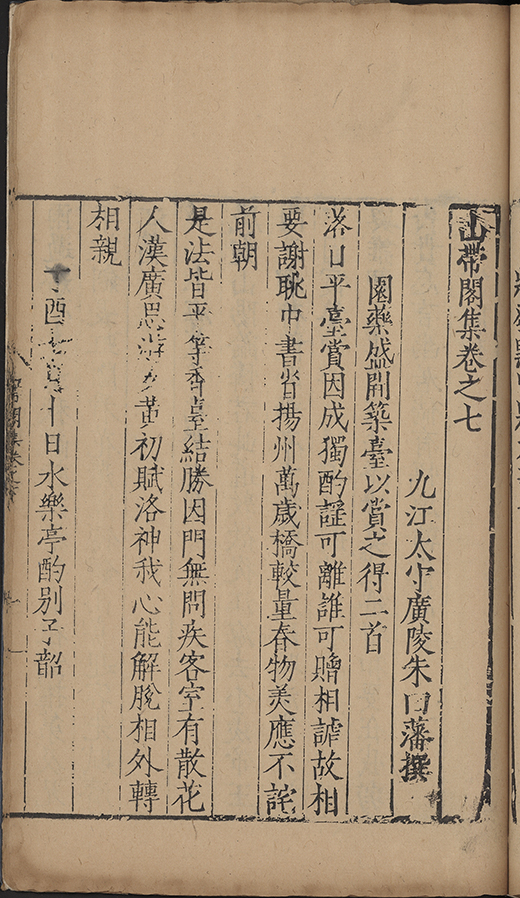 山帶閣集卷之七
九江太守廣陵朱曰藩撰
園藥盛開築臺以賞之得二首
落日平臺賞因成獨酌謡可離誰可贈相謔故相
要謝眺中書省揚州萬歲橋較量春物美應不詫
前朝
是法皆平等香臺結勝因門無問疾客室有散花
人漢廣思游女黃初賦洛神我心能解脫相外轉
相親
酉 十日水樂亭酌别子韶